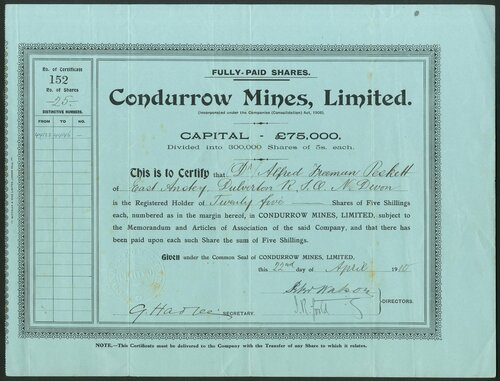 No. of Certificate
152
No. of Shares
-25-
DISTINCTIVE NUMBERS.
FROM TO NO.
FULLY-PAID SHARES.
Condurrow Mines, Limited.
(Incorporated under the Companies (Consolidation) Act, 1908).
CAPITAL - £75,000.
Divided into 300,000 Shares of 5s. each.
This is to Certify that Dr. Alfred Freeman Peskett
of East Anstey, Dulverton R.S.O. N. Devon
is the Registered Holder of Twenty five Shares of Five Shillings
each, numbered as in the margin hereof, in CONDURROW MINES, LIMITED, subject to
the Memorandum and Articles of Association of the said Company, and that there has
been paid upon each such Share the sum of Five Shillings.
Given under the Common Seal of CONDURROW MINES, LIMITED,
this 22nd day of April 1910
Watson
DIRECTORS.
SECRETARY.
NOTE.—This Certificate must be delivered to the Company with the Transfer of any Share to which it relates.